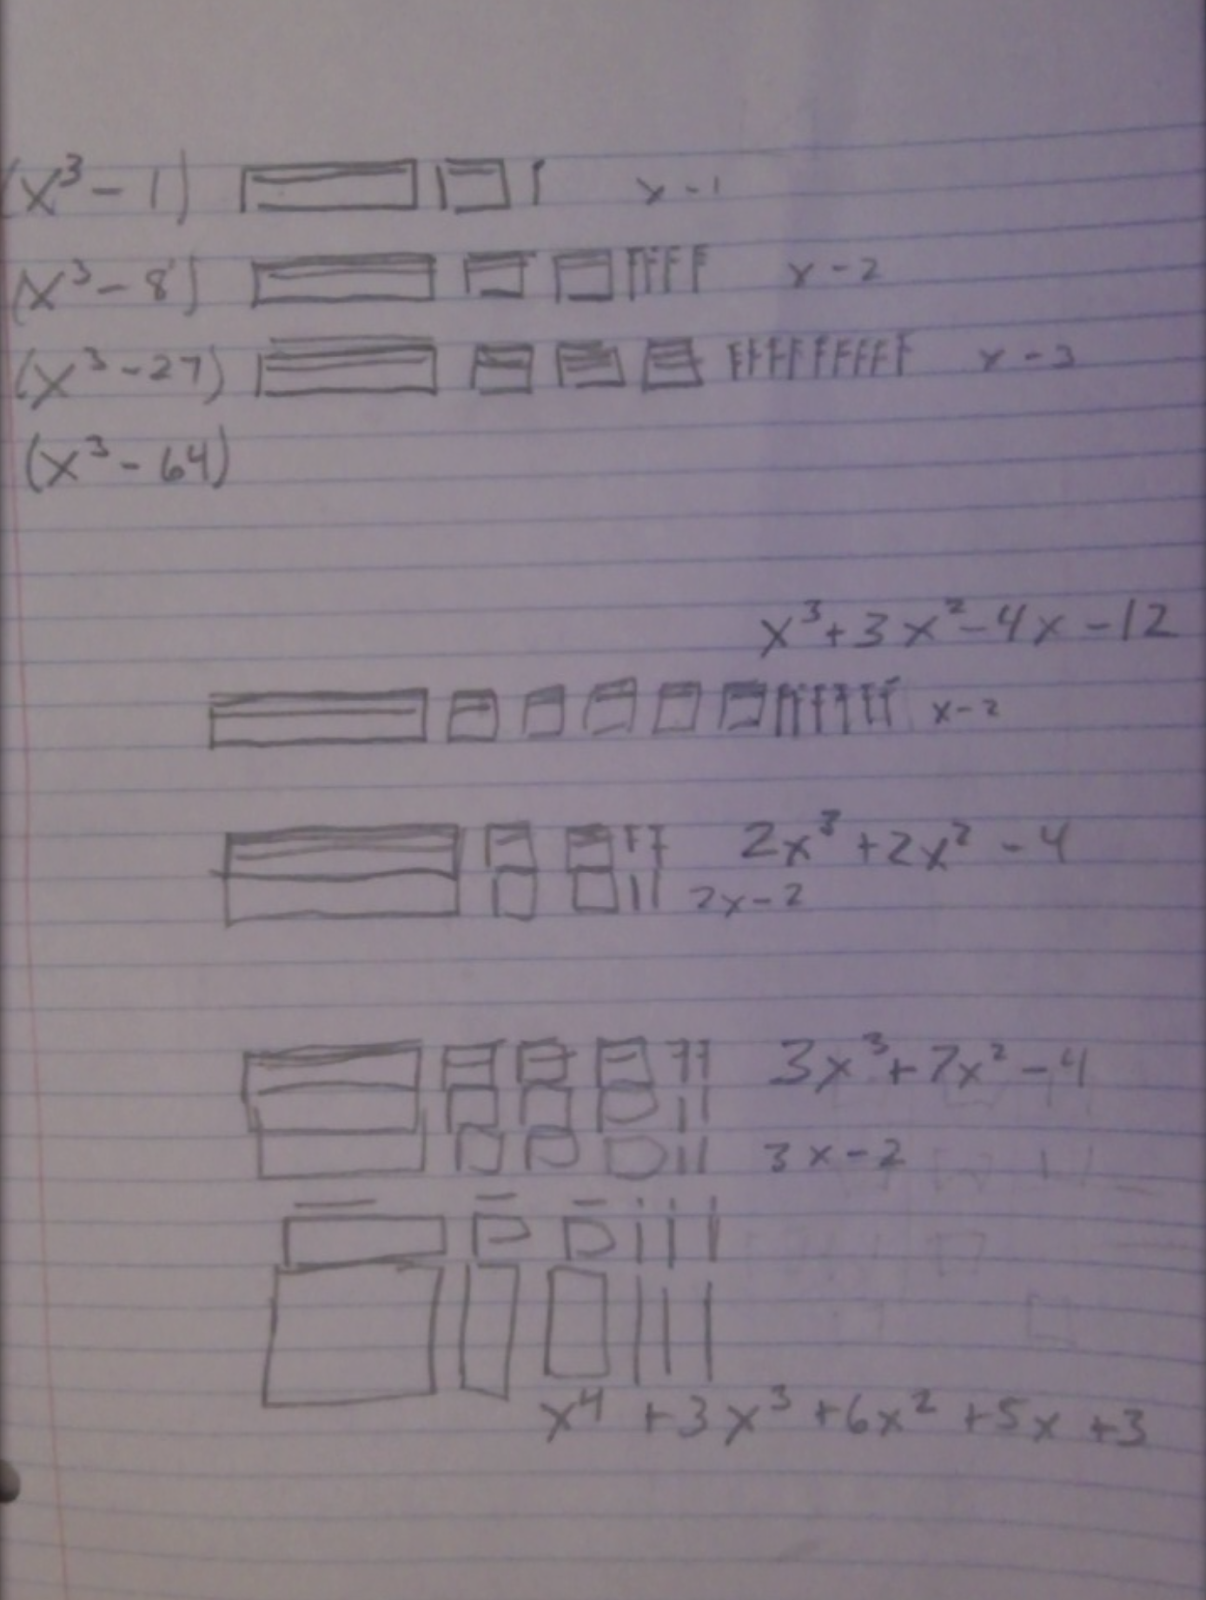 (x³ - 1) x - 1
(x³ - 8) x - 2
(x³ - 27) x - 3
(x³ - 64)
x³ + 3x² - 4x - 12
x - 2
2x³ + 2x² - 4
2x - 2
3x³ + 7x² - 4
3x - 2
x⁴ + 3x³ + 6x² + 5x + 3